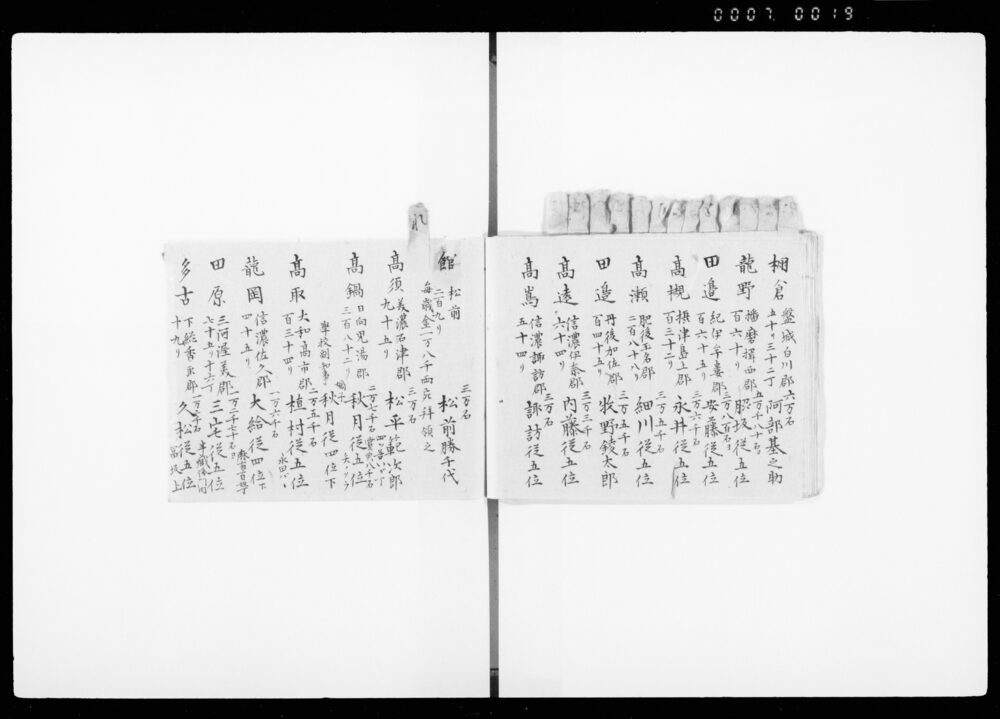 0007 0019
棚倉 盤城白川郡 六万石 阿部基之助
五十リ三十二丁
龍野 播磨揖西郡 五万千八十石 脇坂従五位
百六十リ
田邉 紀伊牟婁郡 三万八百石 安藤従五位
百六十五リ
高槻 摂津島上郡 三万六千石 永井従五位
百三十二リ
高瀬 肥後玉名郡 三万五千石 細川従五位
二百八十八リ
田邉 丹後加佐郡 三万五千石 牧野鋭太郎
百四十五リ
高遠 信濃伊奈郡 三万三千石 内藤従五位
六十四リ
高嶌 信濃諏訪郡 三万石 諏訪従五位
五十四リ
れ
館 松前 三万石 松前勝千代
二百九リ
毎歳金一万八千両宛拝領之
高須 美濃石津郡 三万石 松平範次郎
九十五リ
高鍋 日向児湯郡 二万七千石 秋月従五位
三百八十二リ
学校 秋月従四位下
高取 大和高市郡 二万五千石 植村従五位
百三十四リ
龍岡 信濃佐久郡 一万六千石 大給従四位下
四十五リ
田原 三河渥美郡 一万二千七十石ヨ 三宅従五位
七十五リ十六丁
多古 下総香取郡 一万二千石 久松従五位
十九リ